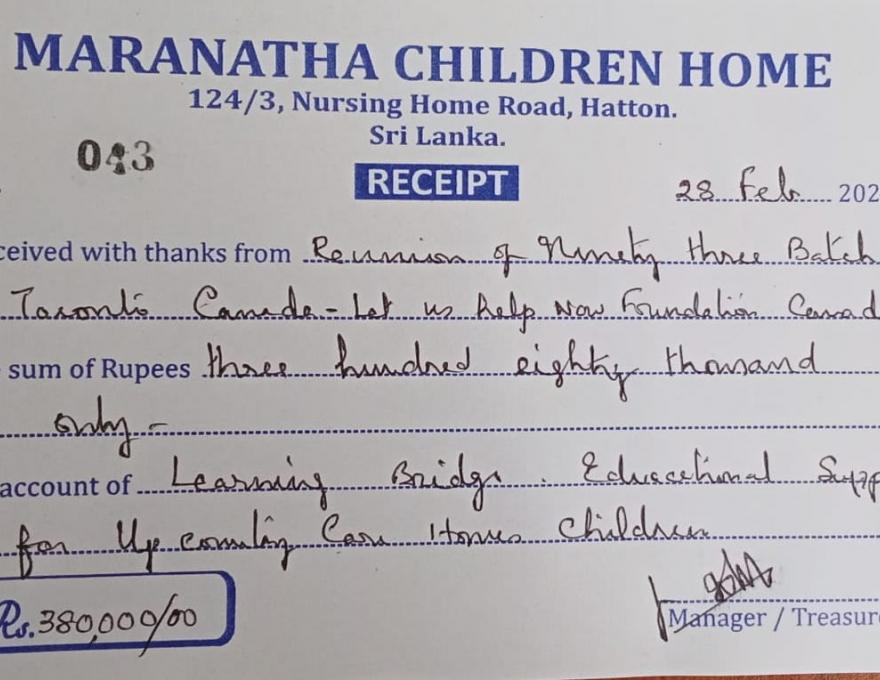 MARANATHA CHILDREN HOME
124/3, Nursing Home Road, Hatton.
Sri Lanka.
043
RECEIPT
28 Feb 202
ceived with thanks from Reunion of Ninety three Batch
Toronto Canada - Let us help Now Foundation Canad
sum of Rupees three hundred eighty thousand
only -
account of Learning Bridge. Educational Supp
for Up country Care Homes Children
Rs. 380,000/00
Manager / Treasure